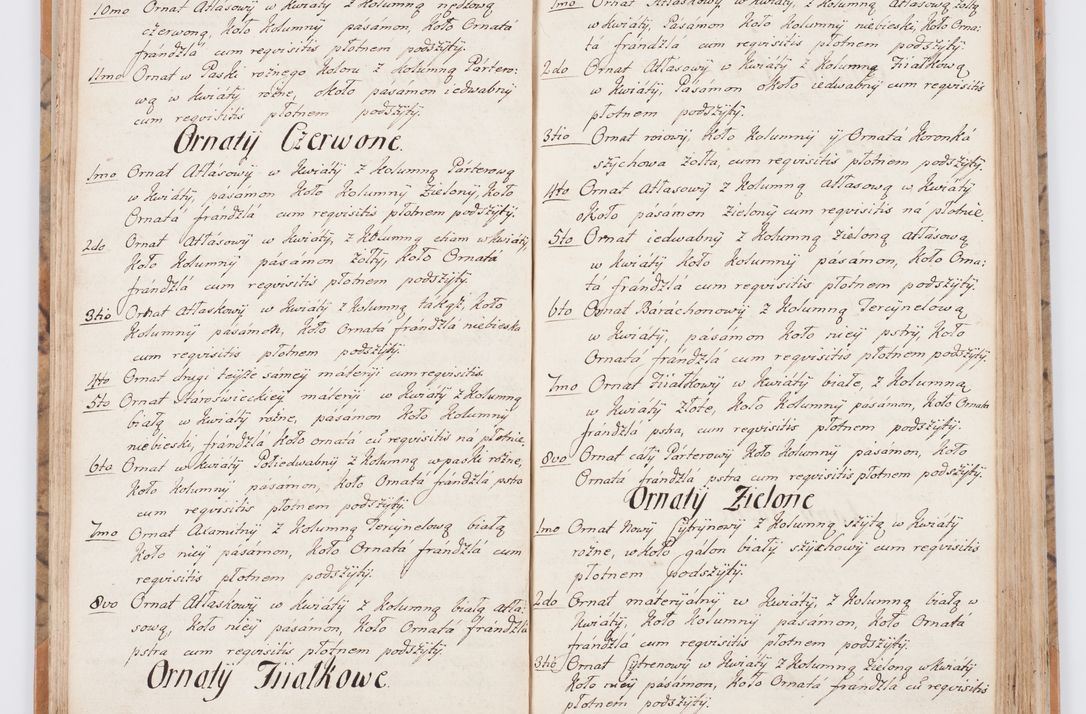 10mo Ornat Atłasowy w kwiáty z Kolumną
czerwoną, Koło Kolumny pásámon, Koło Ornatá
frándzlá cum reqvisitis płotnem podszyty.
11mo Ornat w Paski rożnego koloru z Kolumną Pártero=
wą w kwiáty rożne, około pasamon iedwabny
cum reqvisitis płotnem podszyty.
Ornaty Czerwone.
1mo Ornat Atłásowy w kwiáty z Kolumną Párterową
w kwiáty, pásámon Koło Kolumny zielony, Koło
Ornatá frándzlá cum reqvisitis płotnem podszyty.
2do Ornat Atłásowy w kwiáty, z Kolumną etiam w kwiáty,
Koło Kolumny pásámon żołty, Koło Ornatá
frándzlá cum reqvisitis płotnem podszyty.
3tio Ornat Atłaskowy w kwiáty z Kolumną takąż, Koło
Kolumny pásámon, Koło Ornatá frándzlá niebieska
cum reqvisitis płotnem podszyty.
4to Ornat drugi teyże sámey máteryi cum reqvisitis.
5to Ornat Stároswieckiey máteryi w kwiáty z Kolumną
białą w kwiáty rożne, pásámon Koło Kolumny
niebieski, frándzlá Koło ornatá cū reqvisitis ná płotnie,
6ta Ornat w kwiáty Połiedwabny z Kolumną w paski rożne,
Koło Kolumny pásámon, Koło Ornatá frándzlá pstra
cum reqvisitis płotnem podszyty.
7mo Ornat Axamitny z Kolumną Tercynelową białą
Koło niey pásámon, Koło Ornatá frándzlá cum
reqvisitis płotnem podszyty.
8vo Ornat Atłaskowy w kwiáty z Kolumną białą atła=
sową, Koło niey pásámon, Koło Ornatá frándzlá
pstra cum reqvisitis płotnem podszyty.
Ornaty Fiiałkowe.
1mo Ornat Atłaskowy w kwiáty, z Kolumną Atłasową żołtą
w kwiáty, Pásámon Koło Kolumny niebieski, Koło Orna=
tá frándzlá cum reqvisitis płotnem podszyty.
2do Ornat Atłásowy w kwiáty z Kolumną Fiiałkową
w kwiáty, Pásámon około iedwabny cum reqvisitis
płotnem podszyty.
3tio Ornat Koło Kolumny y Ornatá Koronká
szychowa żołta, cum reqvisitis płotnem podszyty.
4to Ornat Atłasowy z Kolumną atłasową w kwiáty
około pasámon zielony cum reqvisitis ná płotnie.
5to Ornat iedwabny z Kolumną zieloną atłásową
w kwiáty Koło Kolumny pásámon, Koło Orna=
tá frándzlá cum reqvisitis płotnem podszyty.
6to Ornat Bárachonowy z Kolumną Tercynelową
w kwiáty, pásámon Koło niey pstry, Koło
Ornatá frándzlá cum reqvisitis płotnem podszyty,
7mo Ornat Fiiałkowy w kwiáty białe, z Kolumną
w kwiáty złote, Koło Kolumny pásámon, Koło Ornatá
frándzlá pstra, cum reqvisitis płotnem podszyty.
8vo Ornat cáły Párterowy Koło Kolumny pásámon, Koło
Ornatá frándzlá pstra cum reqvisitis płotnem podszyty.
Ornaty Zielone
1mo Ornat Nowy Cytrynowy z Kolumną szytą w kwiáty
rożne, wkoło gálon biały szychowy cum reqvisitis
płotnem podszyty.
2do Ornat materyálny w kwiáty, z Kolumną białą w
kwiáty, Koło Kolumny pásámon, Koło Ornatá
frándzlá cum reqvisitis płotnem podszyty.
3tio Ornat Cytrenowy w kwiáty z Kolumną zieloną w kwiáty
Koło niey pásámon, Koło Ornatá frándzlá cū reqvisitis
płotnem podszyty.